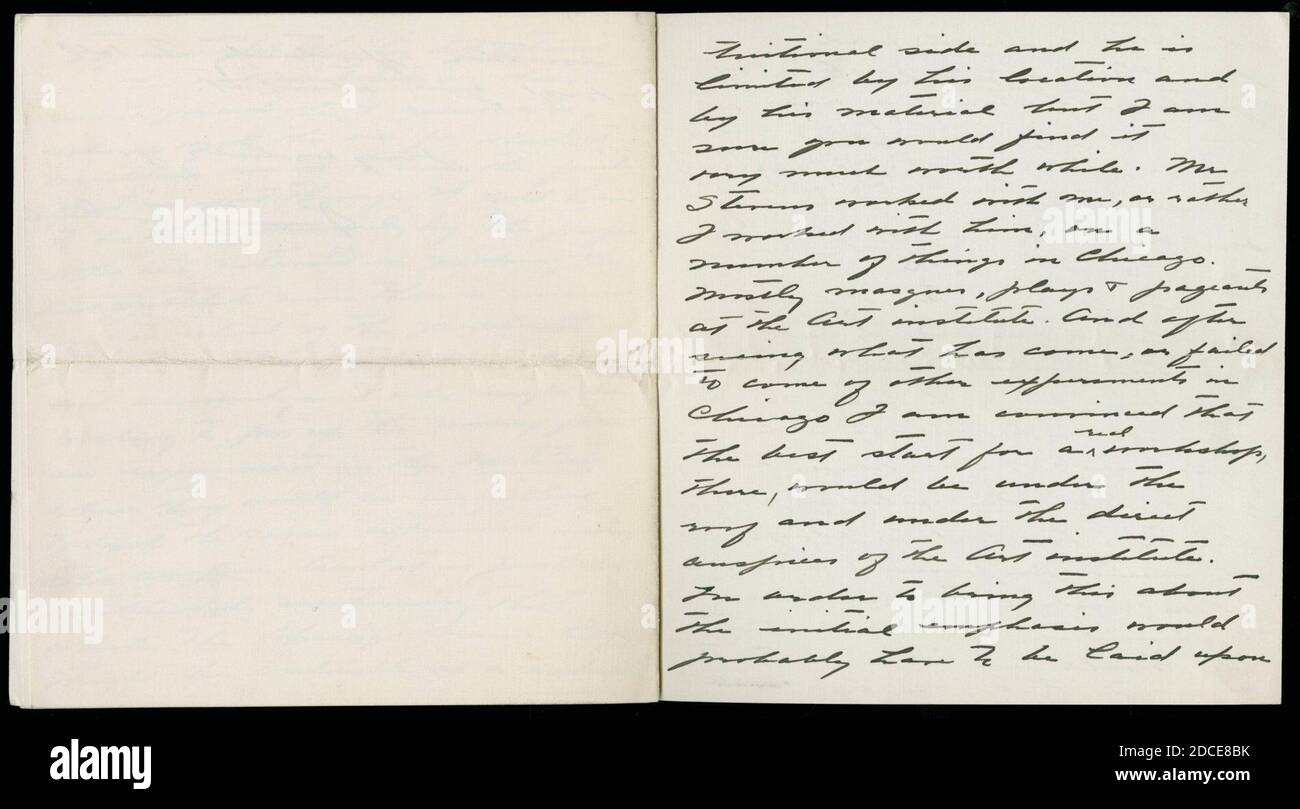 tuitional side and he is
limited by his location and
by his material but I am
sure you would find it
very much worth while. Mr
Stevens worked with me, or rather
I worked with him, on a
number of things in Chicago.
Mostly masques, plays & pageants
at the Art institute. And after
seeing what has come, or failed
to come of other experiments in
Chicago I am convinced that
the best start for a real workshop,
there, would be under the
roof and under the direct
auspices of the Art institute.
In order to bring this about
the initial emphasis would
probably have to be laid upon
alamy
alamy
alamy
alamy
Image ID: 2DCE8BK
www.alamy.com